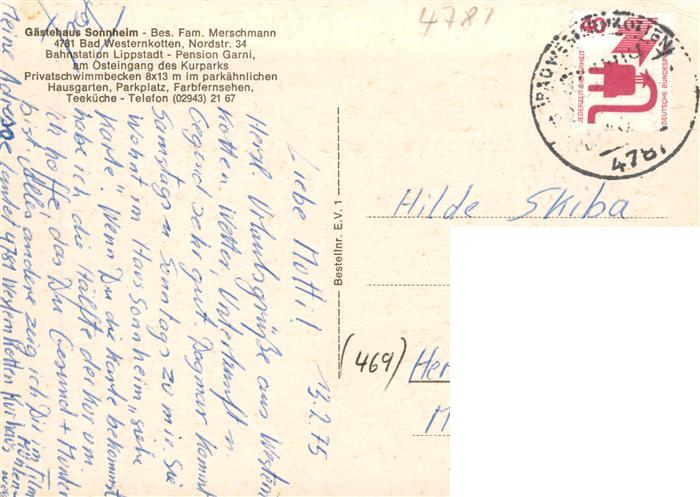 4781
Gästehaus Sonnheim - Bes. Fam. Merschmann
4781 Bad Westernkotten, Nordstr. 34
Bahnstation Lippstadt - Pension Garni,
am Osteingang des Kurparks
Privatschwimmbecken 8x13 m im parkähnlichen
Hausgarten, Parkplatz, Farbfernsehen,
Teeküche - Telefon (02943) 21 67
40
JEDERZEIT SICHERHEIT
DEUTSCHE BUNDESPOST
4781
Bestellnr. E.V. 1
13.2.75
Liebe Mutti!
Herzl Urlaubsgrüße aus Western
kotten. Wetter, Unterkunft u
Gegend sehr gut. Dagmar kommt
Samstags u Sonntags zu mir. Sie
wohnt im Haus Sonnheim "siehe
Karte". Wenn Du die Karte bekommst
habe ich die Hälfte der Kur um
Ich hoffe, das Du Gesund + Munter
bist. Alles andere zeig ich Dir im Film
Meine Adresse lautet 4781 Westernkotten Kurhaus
Hilde Skiba
(469) Her
M